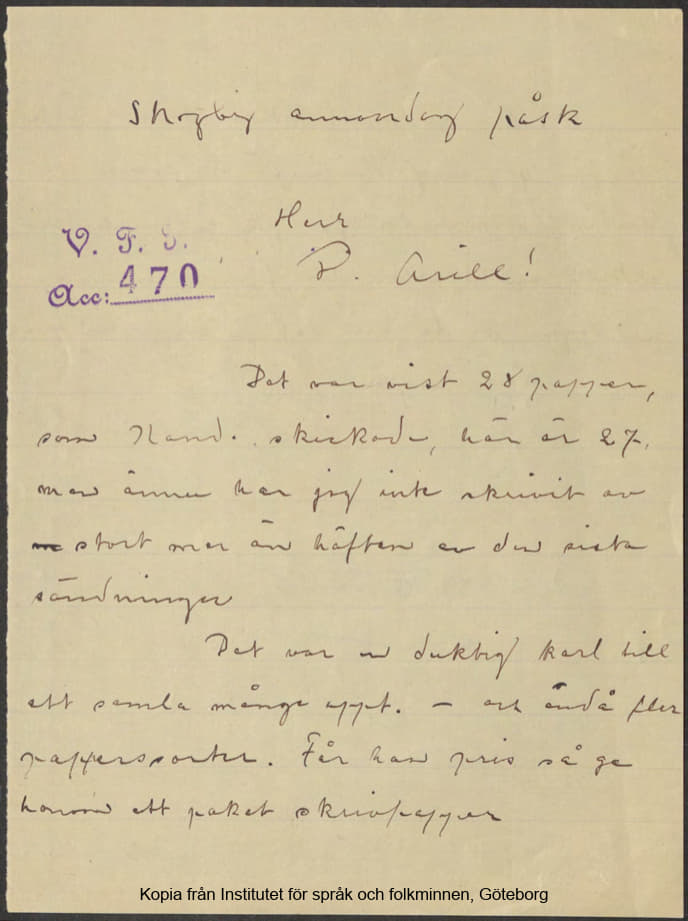 Skogby annandag påsk
Herr
V. F. S.
P. Arill!
Acc: 470
Det var vist 28 papper,
som Hand. skickade, här är 27,
men ännu har jag inte skrivit av
stort mer än häften av den sista
sändningen
Det var en duktig karl till
att samla många uppt. – och ändå fler
papperssorter. Får han pris så ge
honom ett paket skrivpapper
Kopia från Institutet för språk och folkminnen, Göteborg